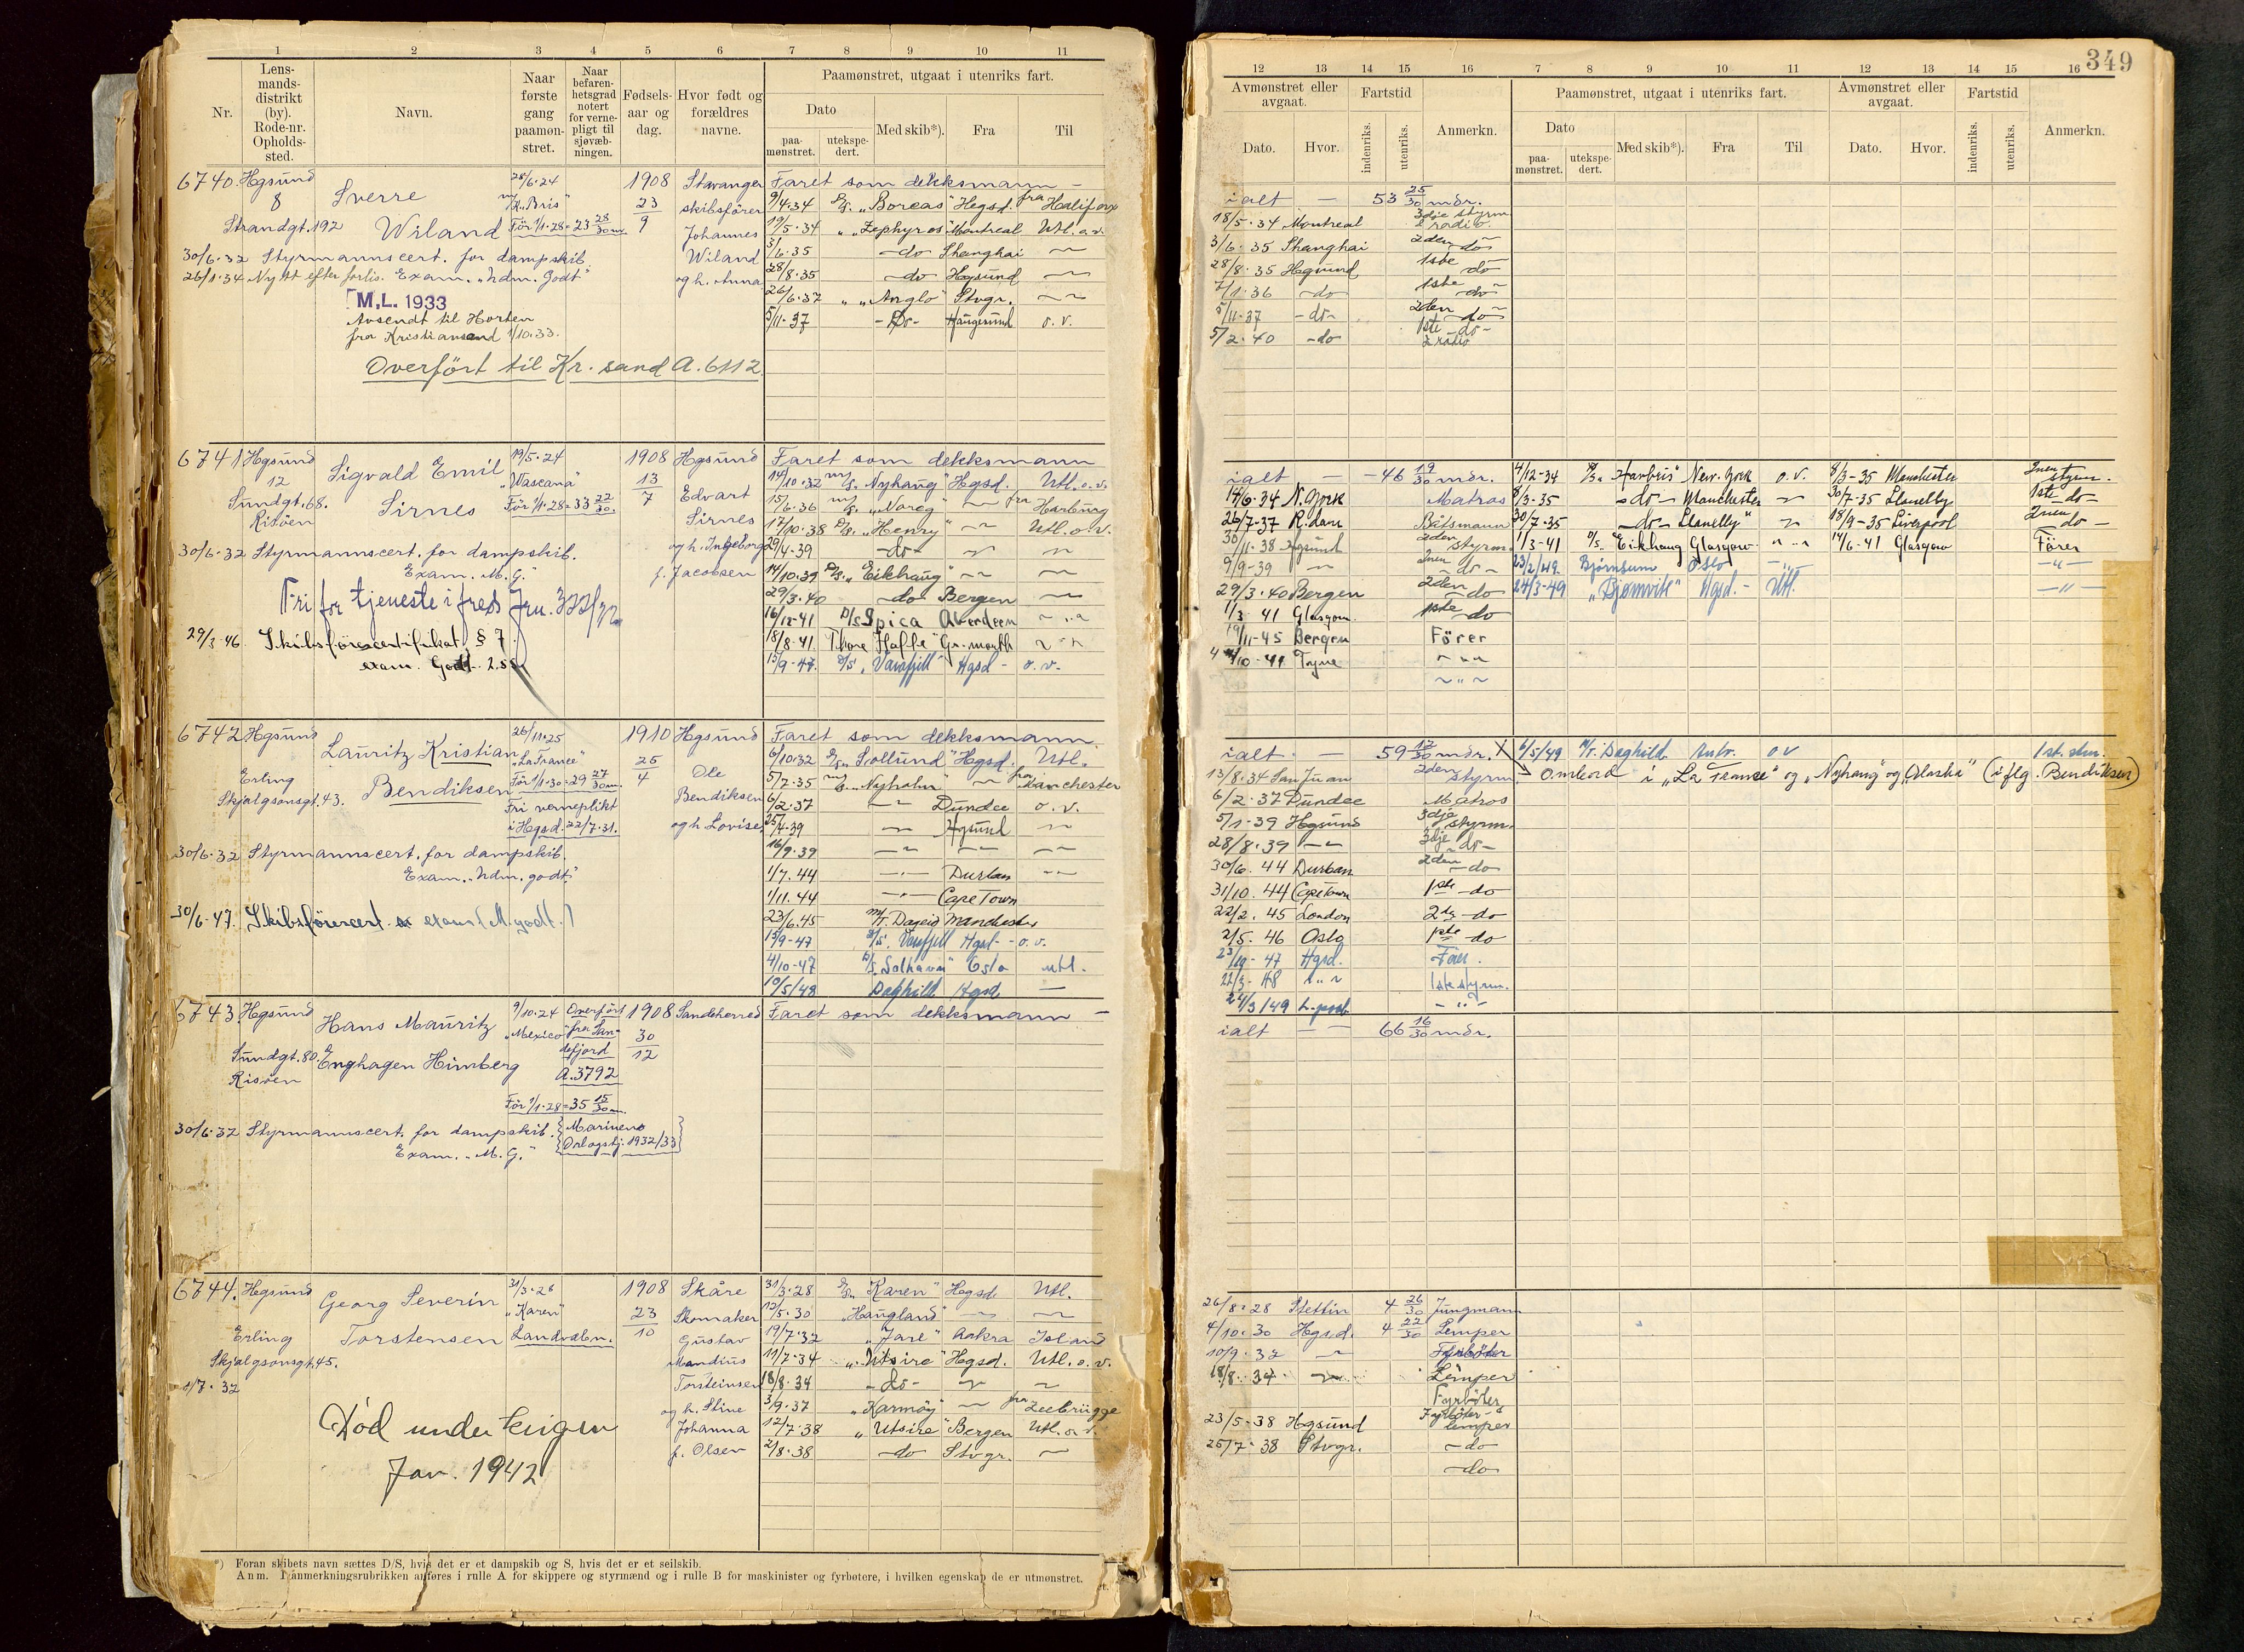 349
1 2 3 4 5 6 7 8 9 10 11
Nr.
Lens-
mands-
distrikt
(by).
Rode-nr.
Opholds-
sted.
Navn.
Naar
første
gang
paamøn-
stret.
Naar
befaren-
hetsgrad
notert
for verne-
pligt til
sjøvæb-
ningen.
Fødsels-
aar og
dag.
Hvor født og
forældres
navne.
Paamønstret, utgaat i utenriks fart.
Dato
paa-
mønstret.
utekspe-
dert.
Med skib*).
Fra
Til
12 13 14 15 16 7 8 9 10 11 12 13 14 15 16
Avmønstret eller
avgaat.
Fartstid
Dato.
Hvor.
indenriks.
utenriks.
Anmerkn.
Paamønstret, utgaat i utenriks fart.
Dato
paa-
mønstret.
utekspe-
dert.
Med skib*).
Fra
Til
Avmønstret eller
avgaat.
Fartstid
Dato.
Hvor.
indenriks.
utenriks.
Anmerkn.
6740. Hgsund
8
Strandgt. 192
Sverre
Wiland
28/6.24
"Bris"
För 1/1.28 = 23 28/30 m.
1908
23/9
Stavanger
skibsförer
Johannes
Wiland
og h. Anna
30/6.32 Styrmannscert. for dampskib.
26/1.34 Nytt efter forlis. Exam. "ndm. Godt"
M.L. 1933
Avsendt til Horten
fra Kristiansand 1/10.33.
Overfört til Kr. sand A. 6112.
Faret som dekksmann —
9/4.34 D/S. "Boreas" Hegsd. fra Halifax
19/5.34 " "Zephyros" Montreal Utl. o.v.
3/6.35 — do Shanghai —
28/8.35 — do Hgsund —
26/6.37 " "Anglo" Stvgr. —
5/11-37 - Do - Haugesund o. v.
ialt — 53 25/30 mdr.
18/5.34 Montreal 3dje styrm. & radio.
3/6.35 Shanghai 2den do
28/8.35 Hegsund 1ste do
7/1.36 — do 1ste do
5/11-37 - do - 2den do
5/2.40 - do 1ste do - & radio
6741 Hgsund
12
Sundgt. 68.
Risöen
Sigvald Emil
Sirnes
19/5.24
"Wascana"
För 1/1.28 = 33 22/30
1908
13/7
Hgsund
Edvart
Sirnes
og h. Ingeborg
f. Jacobsen
30/6.32 Styrmannscert. for dampskib.
Exam. M. G."
Fri for tjeneste i fred
29/3-46. Skibsförescertifikat, § 7.
exam. Godt
Faret som dekksmann
14/10.32 m/s. "Nyhaug" Hgsd. Utl. o. v.
15/6.36 m/s. "Noreg" — fra Harburg
17/10.38 D/s. "Henry" — Utl. o. v.
29/4-39 — do —
14/10.39 D/s. "Eikhaug" —
29/3.40 — do Bergen —
16/12-41 D/s Spica Aberdeen
18/8-41. Thore Hafte" Gr. mouth
15/9-47. D/s. Varafjell Hgsd - o. v.
ialt — 46 19/30 mdr.
14/6.34 N. York Matros
26/7-37 R.dam Båtsmann
30/11.38 Hgsund 2den styrm.
9/9-39 — do -
29/3.40 Bergen 2den do
1/3 41 Glasgow 1ste do
19/11-45 Bergen Förer
4/10-41 Tyne
4/12-34 "Havbris" New. York o. v. 8/3-35 Manchester styrm.
8/3-35 — do — Manchester — 30/7-35 Llanelly 1ste do —
30/7-35 — do — Llanelly" — 18/9-35 Liverpool do —
1/3-41 D/s. Eikhaug Glasgow 14/6-41 Glasgow Förer
23/2/49. Björnsund Oslo
24/3-49 "Björnvik" Hgsd. - Utl.
6742 Hgsund
Erling
Skjalgsonsgt. 43.
Lauritz Kristian
Bendiksen
26/11.25
"La France"
För 1/1.30 = 29 27/30 m.
Fri verneplikt
i Hegsd. 22/7.31.
1910
25/4
Hgsund
Ole
Bendiksen
og h. Lovise
30/6.32 Styrmannscert. for dampskib.
Exam. "ndm. godt."
30/6-47. Skibsförercert. exam (M. godt.)
Faret som dekksmann.
6/10.32 D/s. "Sollund" Hgsd. Utl.
5/7.35 m/s. "Nyholm" — fra Manchester
6/2.37 — Dundee o. v.
25/4-39 — Hgsund —
16/9.39 — — —
1/7.44 — Durban —
1/11.44 — Cape Town
23/6.45 m/T. Dageid Manchester
15/9-47 D/s. Varafjell Hgsd - o. v.
4/10-47 D/s. Solhavn" Oslo utl.
10/5/48 Daghild Hgsd. —
ialt. — 59 12/30 mdr.
13/8.34 San Juan 2den styrm.
6/2.37 Dundee Matros
5/1-39 Hgsund 3dje styrm.
28/8.39 — 3dje do -
30/6.44 Durban 2den do
31/10.44 Cape Town 1ste do
22/2.45 London 2den do
2/5.46 Oslo 1ste do
23/9-47 Hgsd. Förer.
22/3-48 1ste styrm.
24/3/49 L.pool
X 6/5/49 M/T. Daghild Antw. o v 1 st. stm.
Ombord i "La France" og "Nyhaug" og "Alaska" (iflg. Bendiksen)
6743. Hgsund
Sundgt. 80.
Risöen
Hans Mauritz
Enghagen Himberg
9/10.24
"Mexico"
Overfört
fra San-
defjord
A. 3792
För 1/1.28 = 35 15/30 m.
1908
30/12
Sandeherred
30/6.32 Styrmannscert. for dampskib.
Exam. "M. G."
Marinens
Orlogstj. 1932/33
Faret som dekksmann —
ialt — — 66 16/30 mdr.
6744. Hegsund
Erling
Skjalgsonsgt. 45.
1/7.32
Georg Severin
Torstensen
31/3.28
"Karen"
Landvebn.
1908
23/10
Skåre
Skomaker
Gustav
Mandius
Torsteinsen
og h. Stine
Johanna
f. Olsen
Död under krigen
Jan. 1942
31/3.28 D/s. "Karen" Hegsd. Utl.
12/5.30 "Haugland" — —
19/7.32 "Jarl" Aakra Island
11/7.34 " "Utsire" Hegsd. Utl. o. v.
18/8.34 - do - — —
3/9.37 "Karmöy" — fra Zeebrügge
12/7.38 "Utsire" Bergen Utl. o. v.
2/8.38 — do Stvgr. —
26/8.28 Stettin 4 26/30 Jungmann
4/10.30 Hgsd. 4 22/30 Lemper
10/9.32 — Fyrböter
18/8.34 — Lemper
Fyrböter
23/5-38 Hgsund Fyrböter - lemper
25/7-38 Stvgr. — do
— do
*) Foran skibets navn sættes D/S, hvis det er et dampskib og S, hvis det er et seilskib.
Anm. I anmerkningsrubrikken anføres i rulle A for skippere og styrmænd og i rulle B for maskinister og fyrbøtere, i hvilken egenskap de er utmønstret.